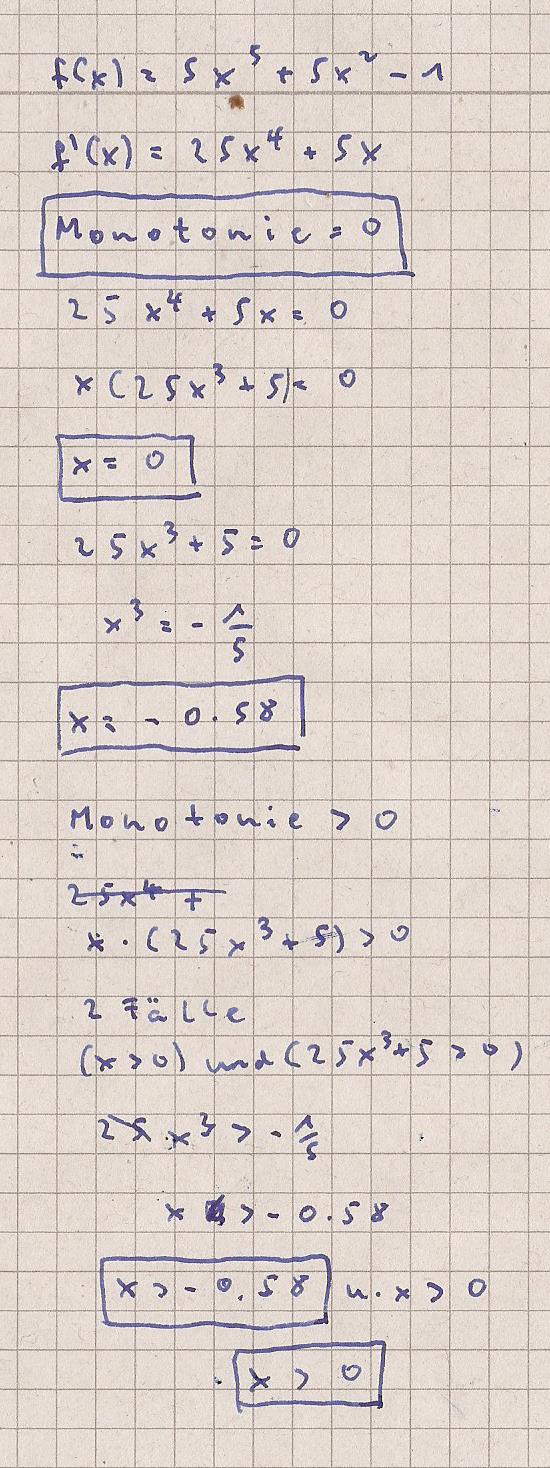 f(x) = 5x⁵ + 5x² - 1
f'(x) = 25x⁴ + 5x
Monotonie = 0
25x⁴ + 5x = 0
x(25x³ + 5) = 0
x = 0
25x³ + 5 = 0
x³ = - 1/5
x = - 0.58
Monotonie > 0
=
25x⁴ +
x · (25x³ + 5) > 0
2 Fälle
(x > 0) und (25x³ + 5 > 0)
25 x³ > - 1/5
x > - 0.58
x > - 0.58 u. x > 0
x > 0